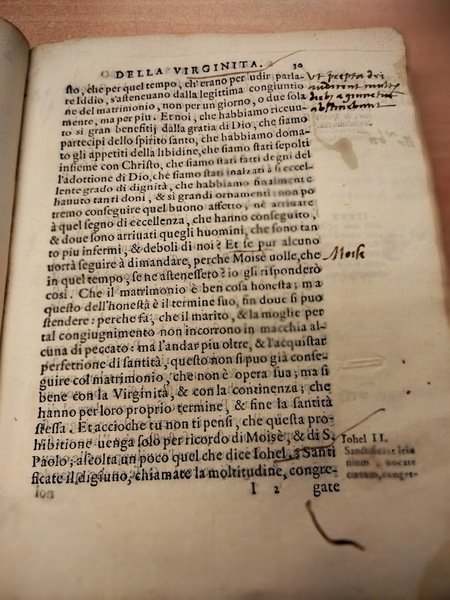 DELLA VIRGINITA. 30
sto, che per quel tempo, ch'erano per udir parla-
re Iddio, s'asteneuano dalla legitima congiuntio
ne del matrimonio, non per un giorno, o due sola
mente, ma per piu. Et noi, che habbiamo riceuu-
to si gran benefitij dalla gratia di Dio, che siamo
partecipi dello spirito santo, che habbiamo doma-
to gli appetiti della libidine, che siamo stati sepolti
insieme con Christo, che siamo stati fatti degni del
l'adottione di Dio, che siamo stati inalzati à si eccel-
lente grado di dignità, che habbiamo finalmente
hauuto tanti doni, & si grandi ornamenti: non po
tremo conseguire quel buono affetto, nè arriuare
à quel segno di eccellenza, che hanno conseguito,
& doue sono arriuati quegli huomini, che sono tan
to piu infermi, & deboli di noi? Et se pur alcuno
uorrà seguire à dimandare, perche Moise uolle, che
in quel tempo, se ne astenessero? io gli risponderò
cosi. Che il matrimonio è ben cosa honesta; ma a
questo dell'honestà è il termine suo, fin doue si puo
stendere: perche fa, che il marito, & la moglie per
tal congiugnimento non incorrono in macchia al-
cuna di peccato: ma l'andar piu oltre, & l'acquistar
perfettione di santità, questo non si puo già conse-
guire col matrimonio, che non è opera sua; ma si
bene con la Virginità, & con la continenza; che
hanno per loro proprio termine, & fine la santità
stessa. Et accioche tu non ti pensi, che questa pro-
hibitione uenga solo per ricordo di Moisè, & di S.
Paolo, ascolta un poco quel che dice Iohel. Santi
ficate il digiuno, chiamate la moltitudine, congre-
I 2 gate
Moise
Tohel II.
Sanctificate ieiu
nium, uocate
coetum, congre-